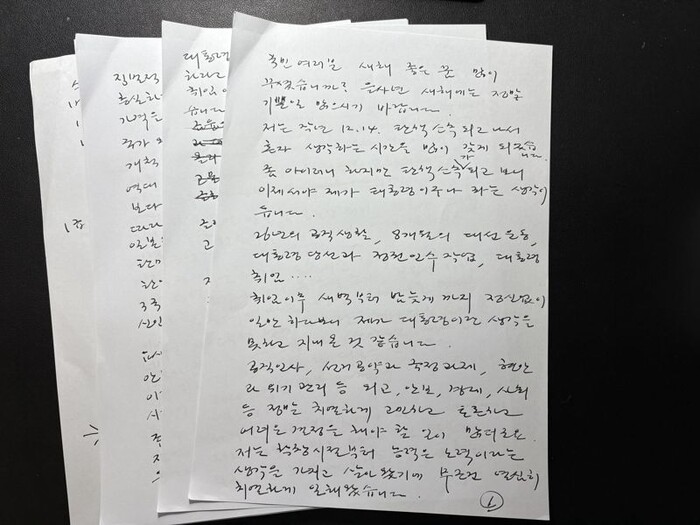 국민 여러분 새해 좋은 꿈 많이
꾸셨습니까? 을사년 새해에는 정말
기쁜 일 많으시기 바랍니다.
저는 작년 12.14. 탄핵소추 되고 나서
혼자 생각하는 시간을 많이 갖게 되었습니다.
좀 아이러니 하지만 탄핵소추가 되고 보니
이제서야 제가 대통령이구나 라는 생각이
듭니다.
26년의 공직생활, 8개월의 대선 운동,
대통령 당선과 정권 인수 작업, 대통령
취임····
취임 이후 새벽부터 밤늦게 까지 정신없이
일만 하다보니 제가 대통령이란 생각을
못하고 지내온 것 같습니다.
공직인사, 선거공약과 국정과제, 현안
과 위기 관리 등 외교, 안보, 경제, 사회
등 정말 치열하게 고민하고 토론하고
어려운 결정을 해야 할 일이 많더군요.
저는 학창시절부터 능력은 노력이라는
생각을 가지고 살아왔기에 무조건 열심히
치열하게 일해왔습니다.
1
대통령
하라고
취임
습니다
집면적
충실하
가격은
국가
개혁
역대
보다
따라
일본
3국
신인